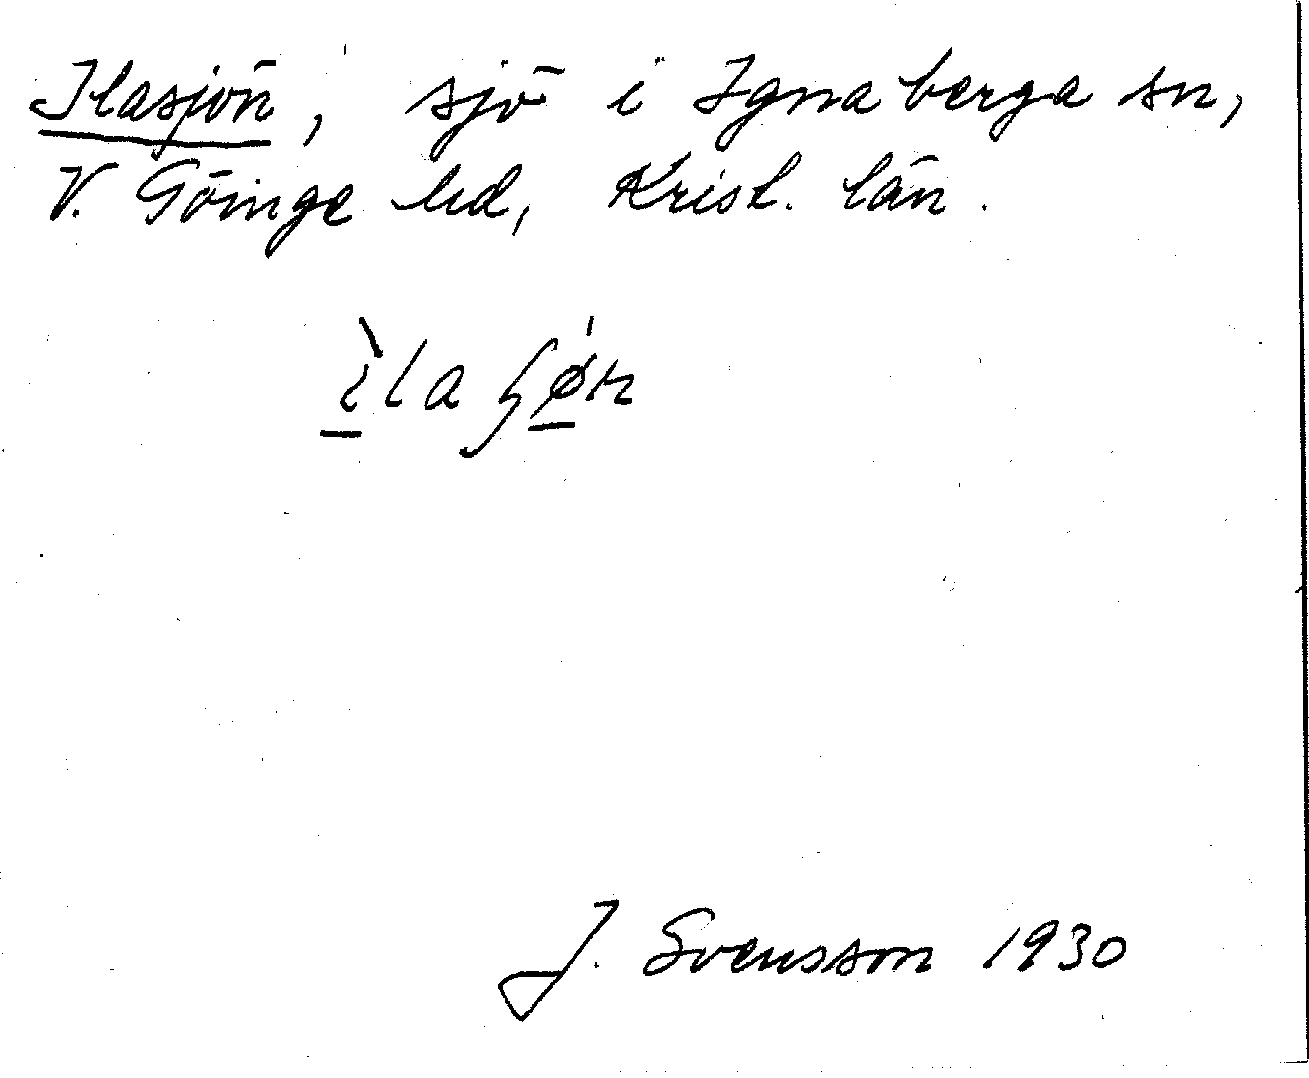 Ilasjön, sjö i Ignaberga sn,
V. Göinge hd, Krist. län.
J. Svensson 1930